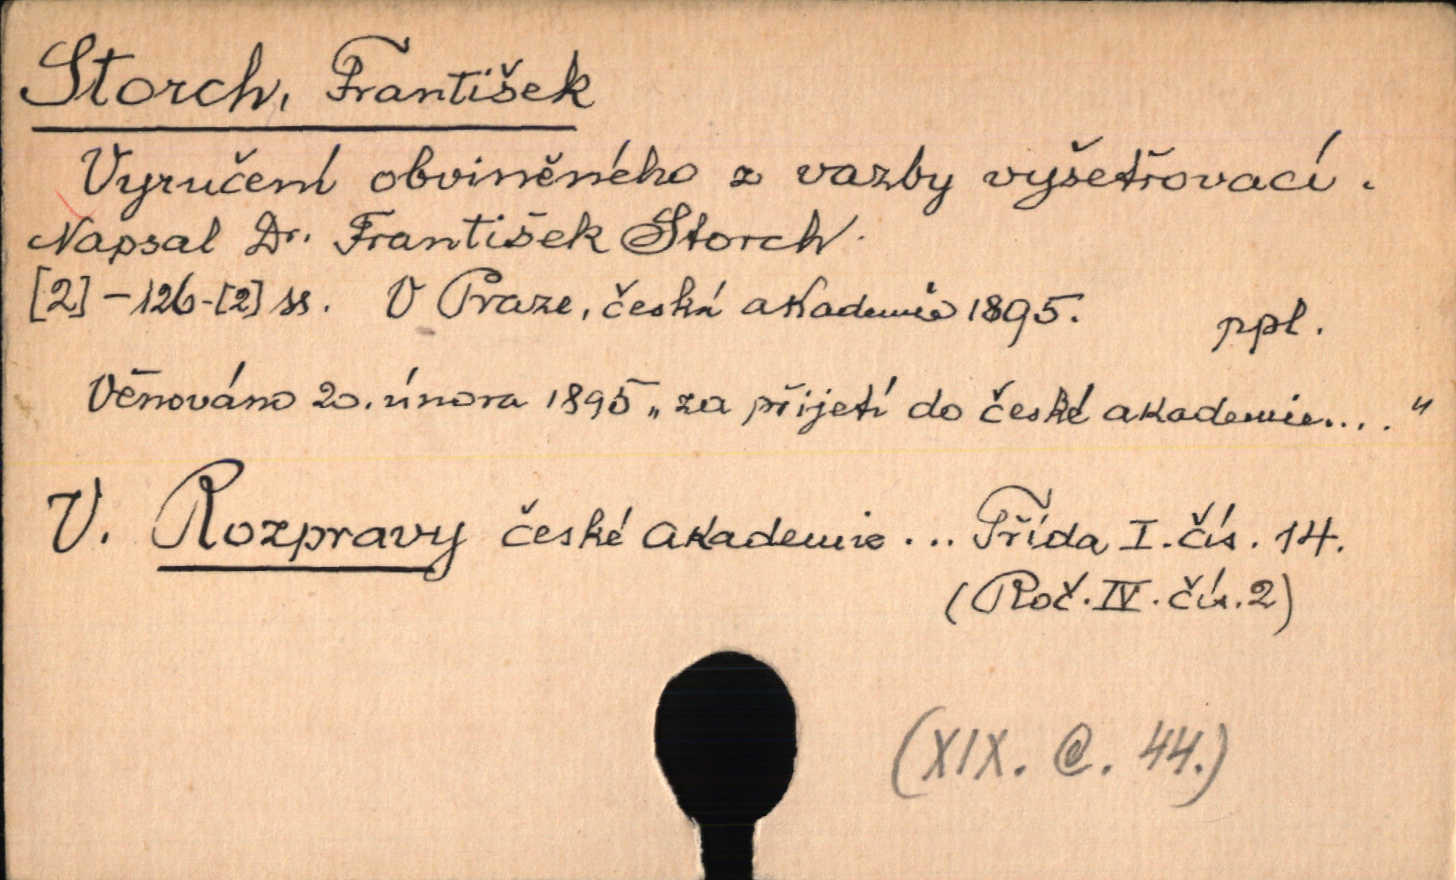 Storch, František
Vyručení obviněného z vazby vyšetřovací.
Napsal Dr. František Storch.
[2]-126-[2] ss. V Praze, česká akademie 1895. ppl.
Věnováno 20. února 1895 „za přijetí do české akademie...."
V. Rozpravy české akademie ... Třída I. čís. 14.
(Roč. IV. čís. 2)
(XIX. C. 44.)